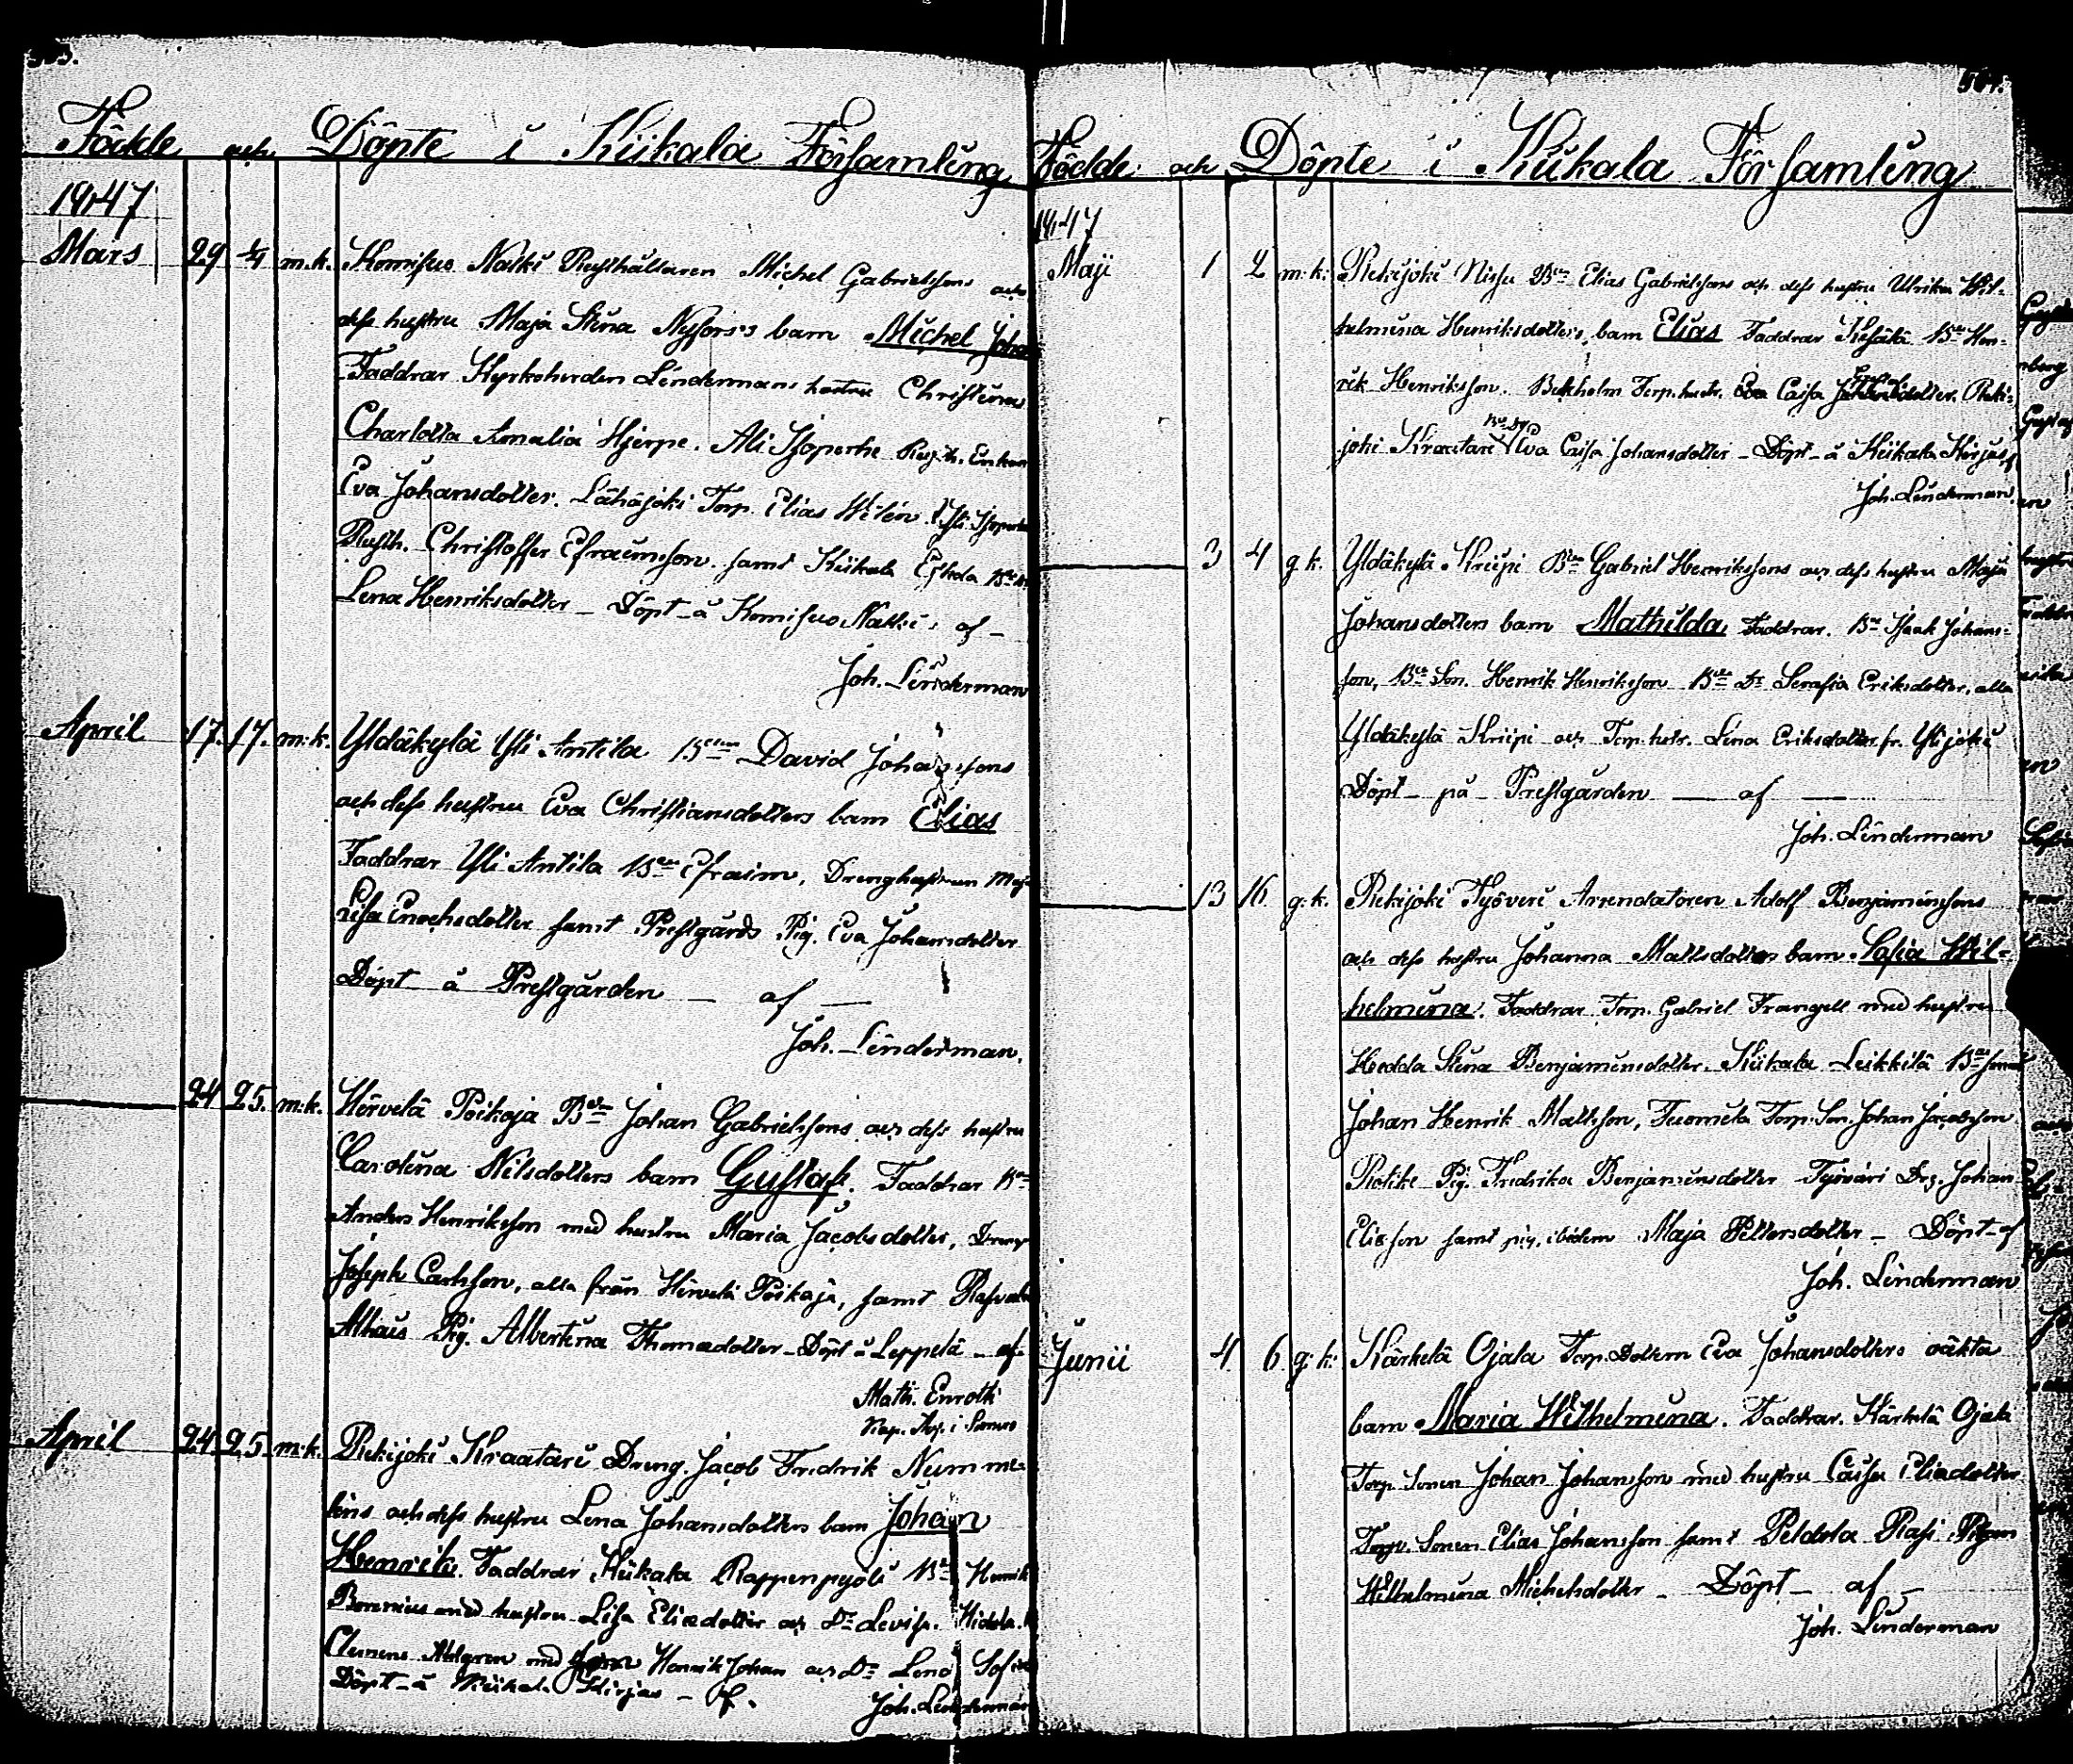 Födde och Döpte i Kiikala Församling
1847
Mars 29 4/4 m.k. Komisuo Nalki Rusthållaren Michel Gabrielssons och
dess hustru Maja Stina Nyfors's barn Michel Johan
Faddrar Kyrkoherden Lindermans hustru Christina
Charlotta Amalia Hjerpe. Ali Isoperhe Rusth. Enkan
Eva Johansdotter. Lähäjoki Torp. Elias Wilén. Yli Isoperhe
Rusth. Christoffer Efraimsson samt Kiikala Eskola
Lena Henriksdotter _ Döpt å Komisuo Nalki af _
Joh. Linderman
April 17. 17. m:k. Yldäkylä Yli Antila B. David Johanssons
och dess hustru Eva Christiansdotters barn Elias
Faddrar Yli Antila B. Efraim, Drenghustrun Maja
Lisa Enochsdotter samt Prestgårds Pig. Eva Johansdotter
Döpt å Prestgården _ af _
Joh. Linderman.
24 25. m:k. Hirvelä Poikoja B. Johan Gabrielssons och dess hustru
Carolina Nilsdotters barn Gustaf. Faddrar B.
Anders Henriksson med hustru Maria Jacobsdotter, Dreng
Joseph Carlsson, alla från Hirvelä Poikaja, samt
Alhais Pig. Albertina Thomædotter _ Döpt å Leppelä _ af
Math. Enroth
Kap. i Somero
April 24. 25. m:k. Rekijoki Kraatari Dreng. Jacob Fredrik Numme=
lins och dess hustru Lena Johansdotters barn Johan
Henrik Faddrar Kiikala Rappenpyöli B. Henrik
med hustru Lisa Eliædotter och D. Lovisa.
Clemens Ahlgren med son Henrik Johan och D. Lena Sofia
Döpt _ å Kiikala Kirjas _ af.
Joh. Linderman
504.
Födde och Döpte i Kiikala Församling
1847
Maji 1 2 m:k: Rekijoki Nissu B. Elias Gabrielssons och dess hustru Ulrika Wil=
helmina Henriksdotters, barn Elias Faddrar Kesäkä B. Hen=
rik Henriksson. Bekholm Torp. hustr. Caisa Reki=
joki Kraatari Eva Caisa Johansdotter _ Döpt _ å Kiikala Kirjas af
Joh. Linderman.
3 4 g k. Yldäkylä Kriipi B. Gabriel Henrikssons och dess hustru Maja
Johansdotters barn Mathilda Faddrar. B. Isaak Johans=
son, B. Son. Henrik Henriksson B. D. Serafia Eriksdotter, alla
Yldäkylä Kriipi och Torp. hustr. Lena Eriksdotter fr. Ylijoki
Döpt _ på _ Prestgården _ af _
Joh. Linderman
13 16 g:k. Rekijoki Työveri Arrendatoren Adolf Benjaminssons
och dess hustru Johanna Mattsdotters barn Sofia Wil=
helmina. Faddrar Torp. Gabriel Frangell med hustru
Hedda Stina Benjaminsdotter. Kiikala Leikkilä B. sonen
Johan Henrik Mattsson, Tuomela Torp. Son. Johan Jacobsson
Pig. Fredrika Benjaminsdotter Työväri Drg. Johan
Eliæsson samt pig. ibidem Maja Pettersdotter _ Döpt _ af
Joh. Linderman
Junii 4. 6. g:k: Kärkelä Ojala Torp. Dottern Eva Johansdotters oäkta
barn Maria Wilhelmina. Faddrar. Kärkelä Ojala
Torp. Sonen Johan Johansson med hustru Caisa Eliædotter
Torp. Sonen Elias Johansson samt Peldola Rasi Pigan
Wilhelmina Michelsdotter _ Döpt _ af _
Joh. Linderman